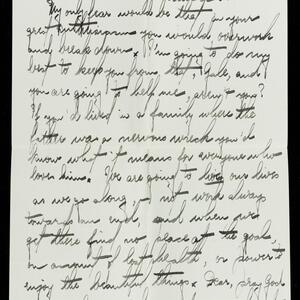 My only fear would be that in your
great enthusiasm you would overwork
and break down. I'm going to do my
best to keep you from that, Gale, and
you are going to help me, aren't you?
If you'd lived in a family where the
father was a nervous wreck you'd
know what it means for everyone who
loves him. We are going to live our lives
as we go along, – not work always
towards an end, and when we
get there find no place at the goal,
on account of lost health, or power to
enjoy the beautiful things. Dear, pray God